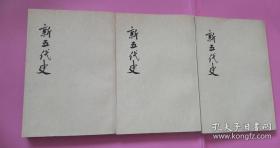 新五代史
新五代史
新五代史
孔夫子旧书网